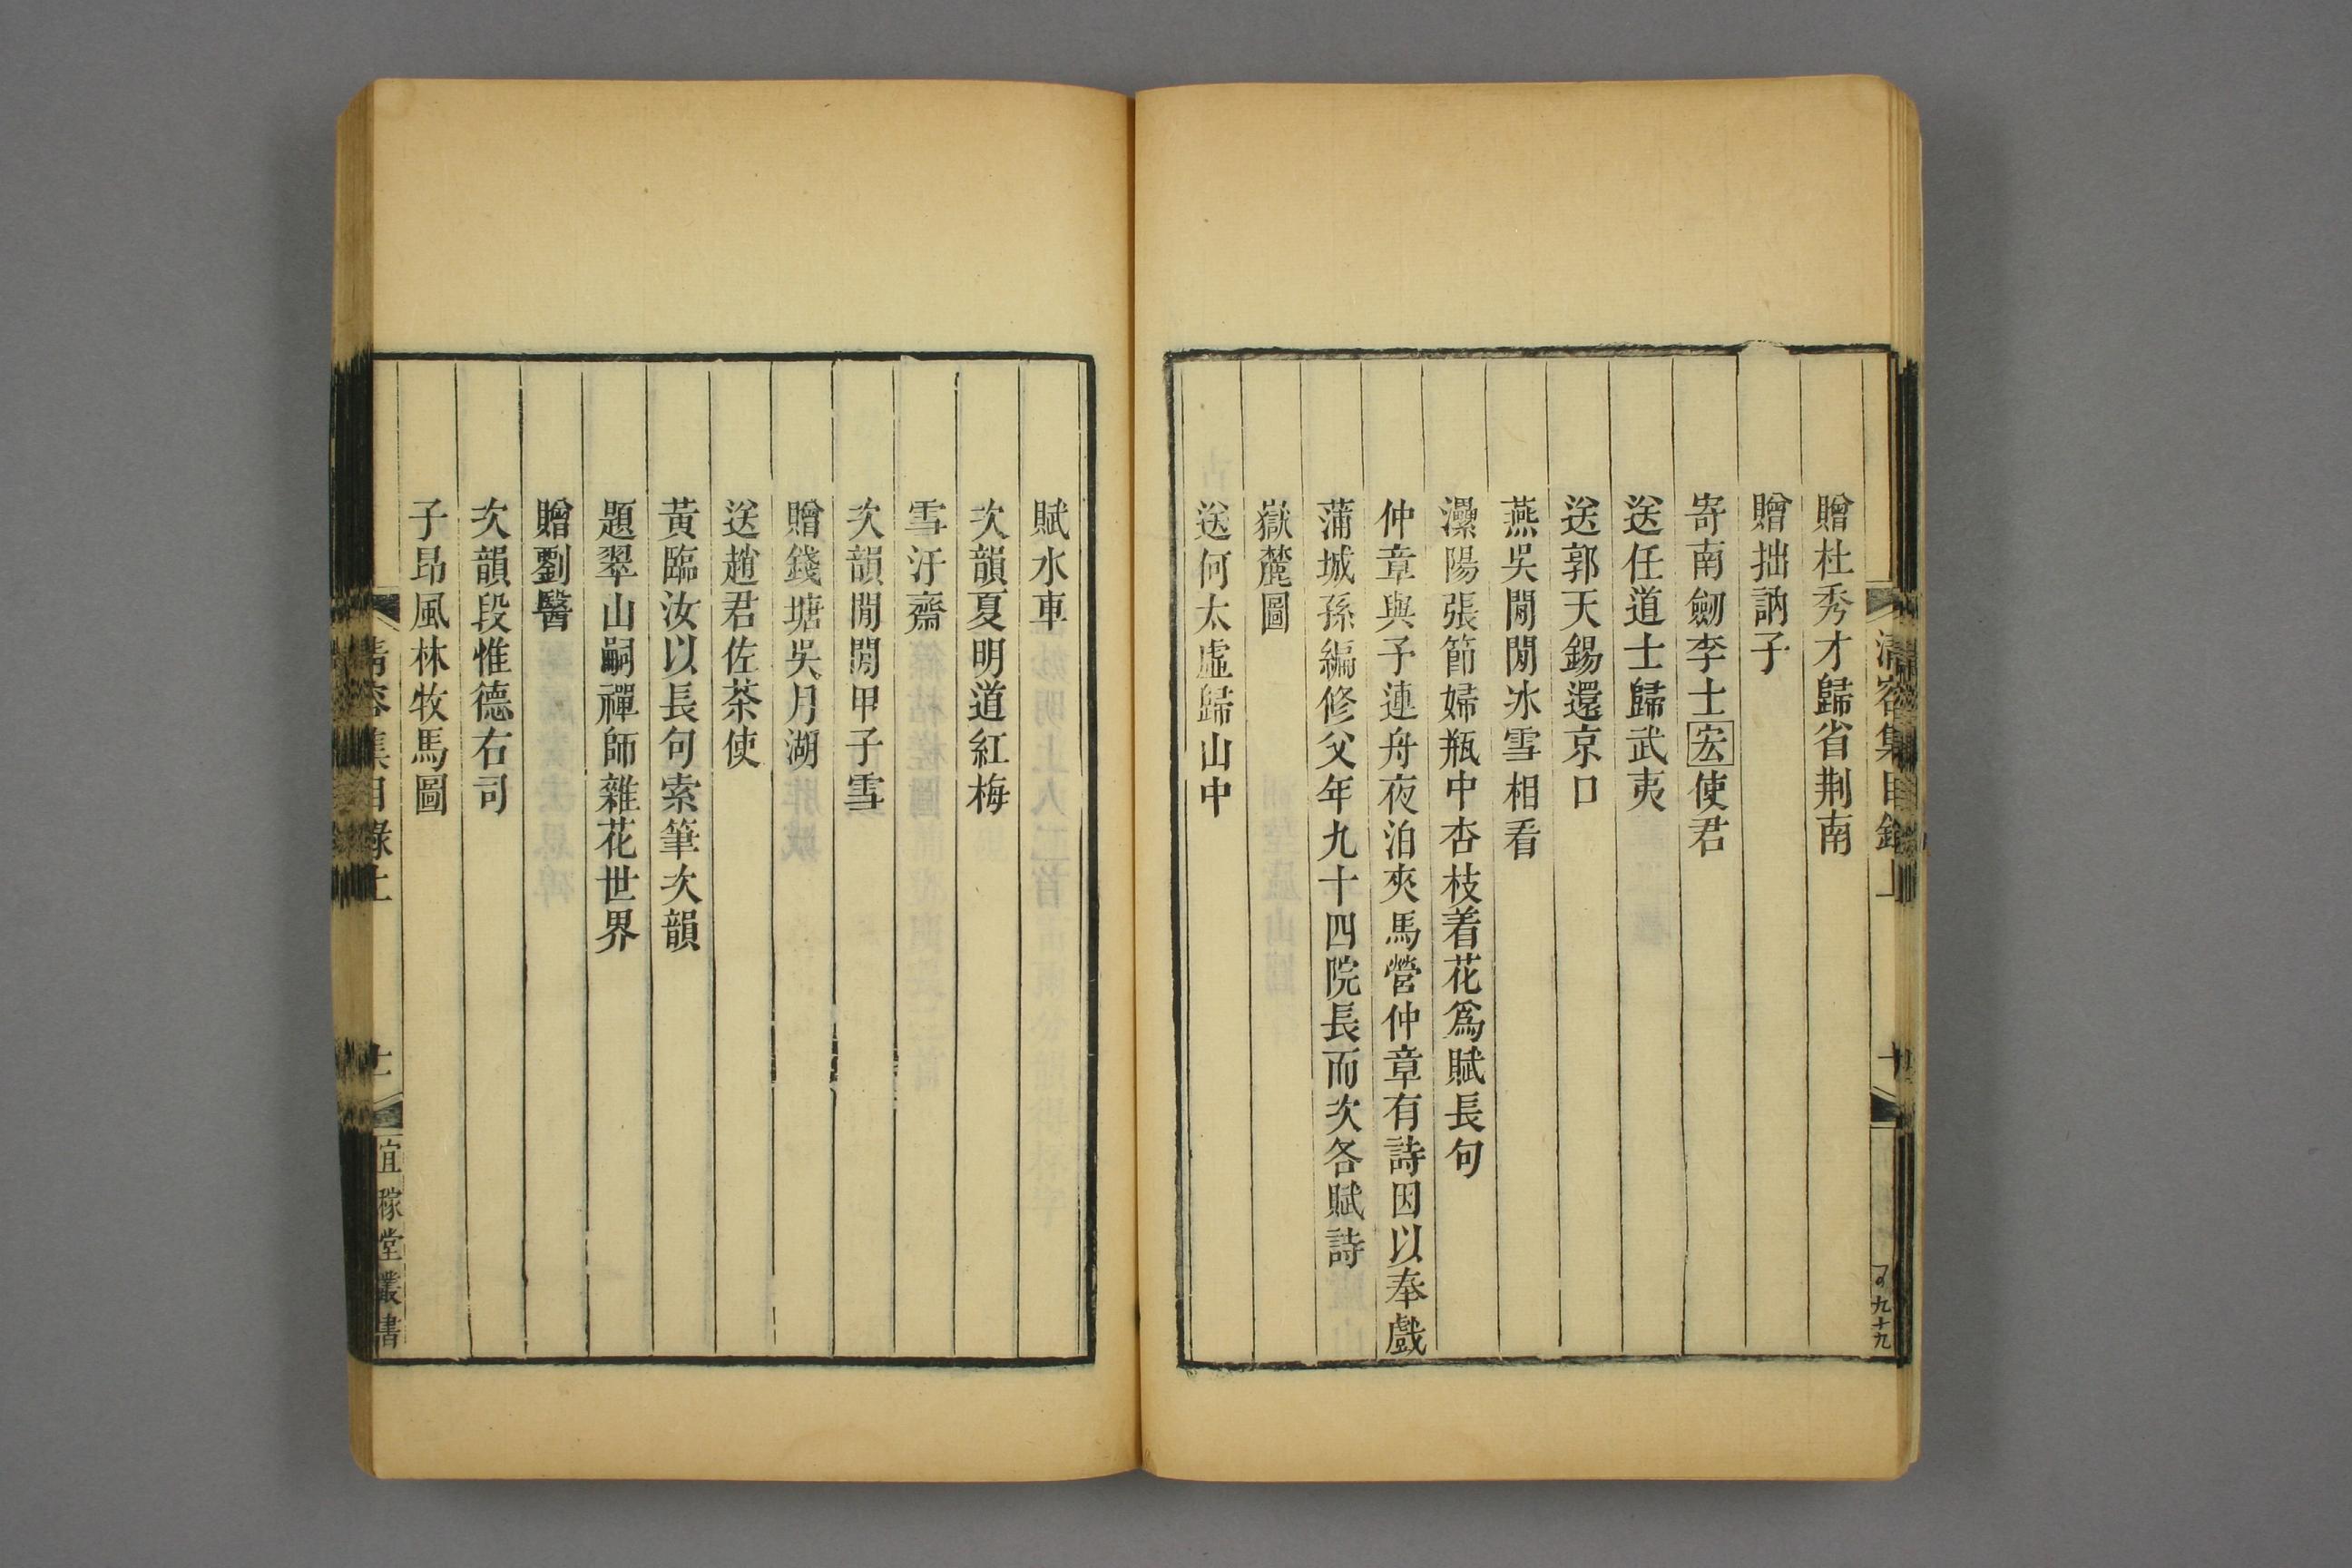 贈杜秀才歸省荆南
贈拙訥子
寄南劒李士宏使君
送任道士歸武夷
送郭天錫還京口
燕吳閒閒冰雪相看
灤陽張節婦瓶中杏枝着花爲賦長句
仲章與予連舟夜泊夾馬營仲章有詩因以奉戲
蒲城孫編修父年九十四院長而次各賦詩
嶽麓圖
送何太虛歸山中
賦水車
次韻夏明道紅梅
雪汙齋
次韻閒閒甲子雪
贈錢塘吳月湖
送趙君佐茶使
黃臨汝以長句索筆次韻
題翠山嗣禪師雜花世界
贈劉醫
次韻段惟德右司
子昂風林牧馬圖
清容集目錄上
宜稼堂叢書